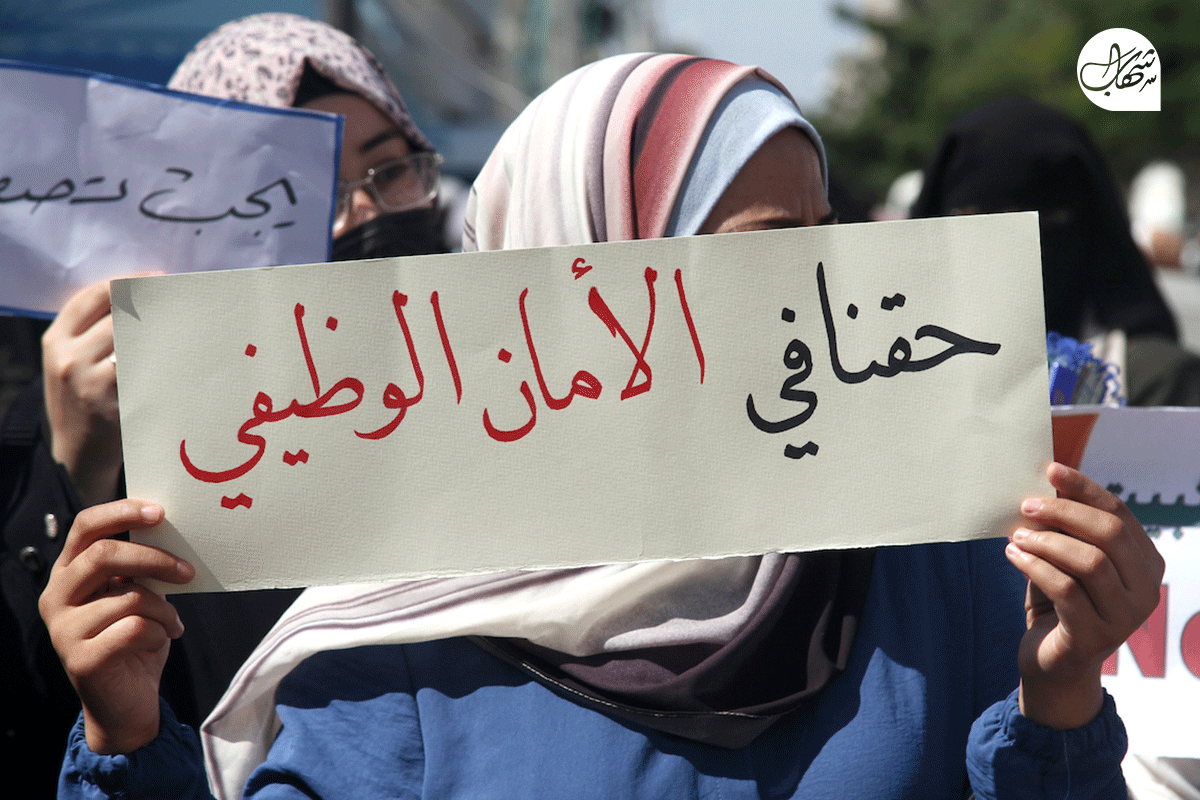 شهاب
يجب تص
حقنا في الأمان الوظيفي
No